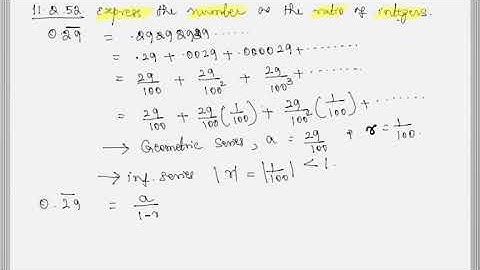 11.2.52 Express the number as the ratio of integers.
0.2̅9̅ = .29292929.......
= .29 + .0029 + .000029 + .......
= 29/100 + 29/100² + 29/100³ + .......
= 29/100 + 29/100 (1/100) + 29/100² (1/100) + .......
→ Geometric series, a = 29/100, r = 1/100.
→ inf. series |r| = |1/100| < 1.
0.2̅9̅ = a/1-r